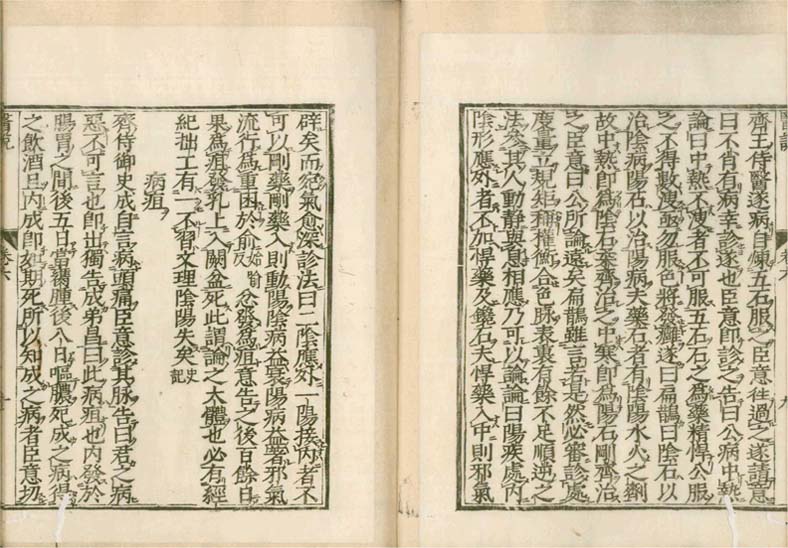 齊王侍醫遂病自煉五石服之臣意往過之遂謂意
曰不肖有病幸診遂也臣意即診之告曰公病中熱
論曰中熱不溲者不可服五石石之爲藥精悍公服
之不得數溲亟勿服色將發癰遂曰扁鵲曰陰石以
治陰病陽石以治陽病夫藥石者有陰陽水火之劑
故中熱即爲陰石柔齊治之中寒即爲陽石剛齊治
之臣意曰公所論遠矣扁鵲雖言若是然必審診處
度量立規矩稱權衡合色脉表裏有餘不足順逆之
法參其人動靜與息相應乃可以論論曰陽疾處内
陰形應外者不加悍藥及鑱石夫悍藥入中則邪氣
辟矣而宛氣愈深診法曰二陰應外一陽接内者不
可以剛藥剛藥入則動陽陰病益衰陽病益著邪氣
流行爲重困於俞始喻反忿發爲疽意告之後百餘日
果爲疽發乳上入闕盆死此謂論之大體也必有經
紀拙工有一不習文理陰陽失矣史記
病疽
齊侍御史成自言病頭痛臣意診其脉告曰君之病
惡不可言也即出獨告成弟昌曰此病疽也内發於
腸胃之間後五日當癰腫後八日嘔膿死成之病得
之飲酒且内成即如期死所以知成之病者臣意切
醫説
卷六